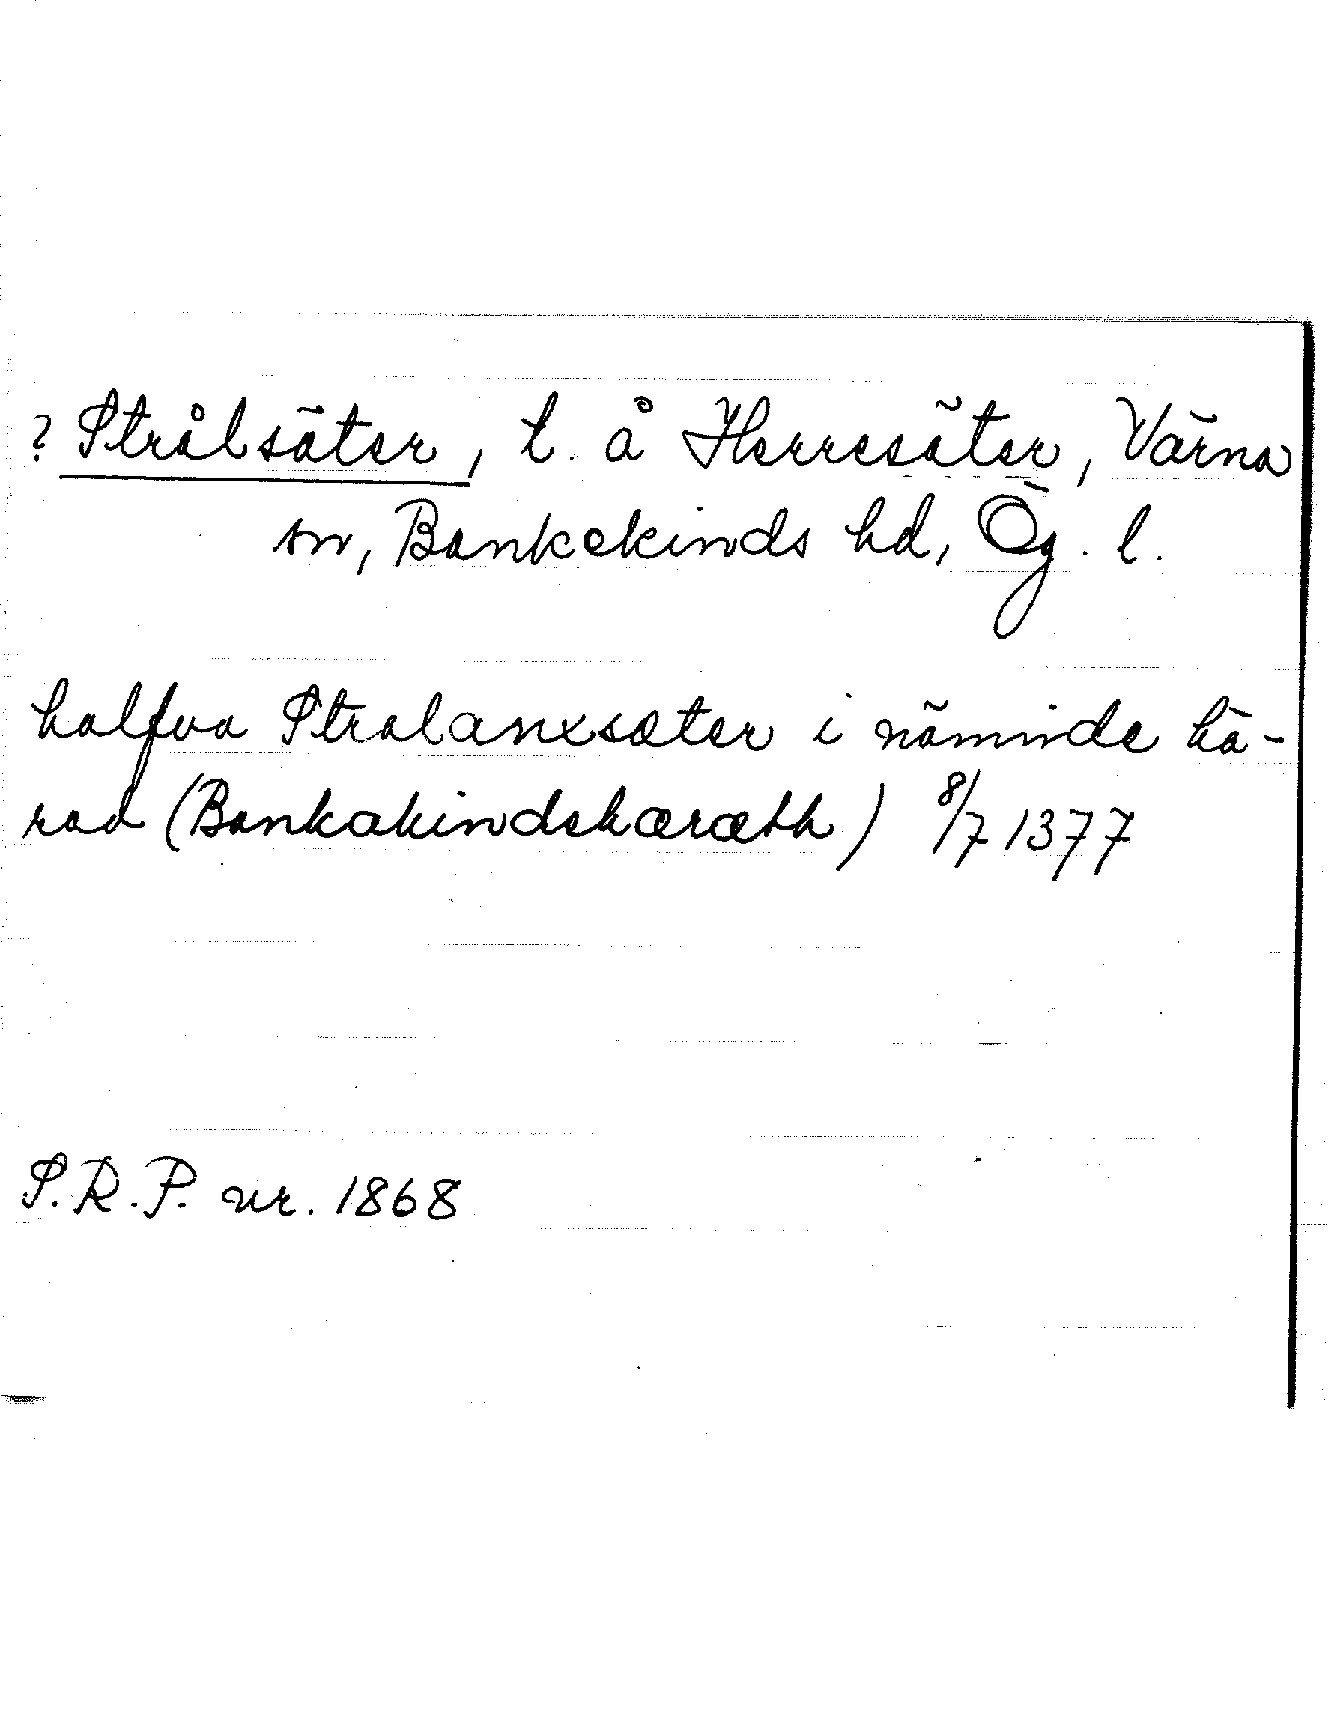 ? Strålsäter, t. å Herresäter, Värna
sn, Bankekinds hd, Ög. l.
halfva Stralanxsæter i nämnde hä-
rad (Bankakindshæræth) 8/7 1377
S.R.P. nr. 1868